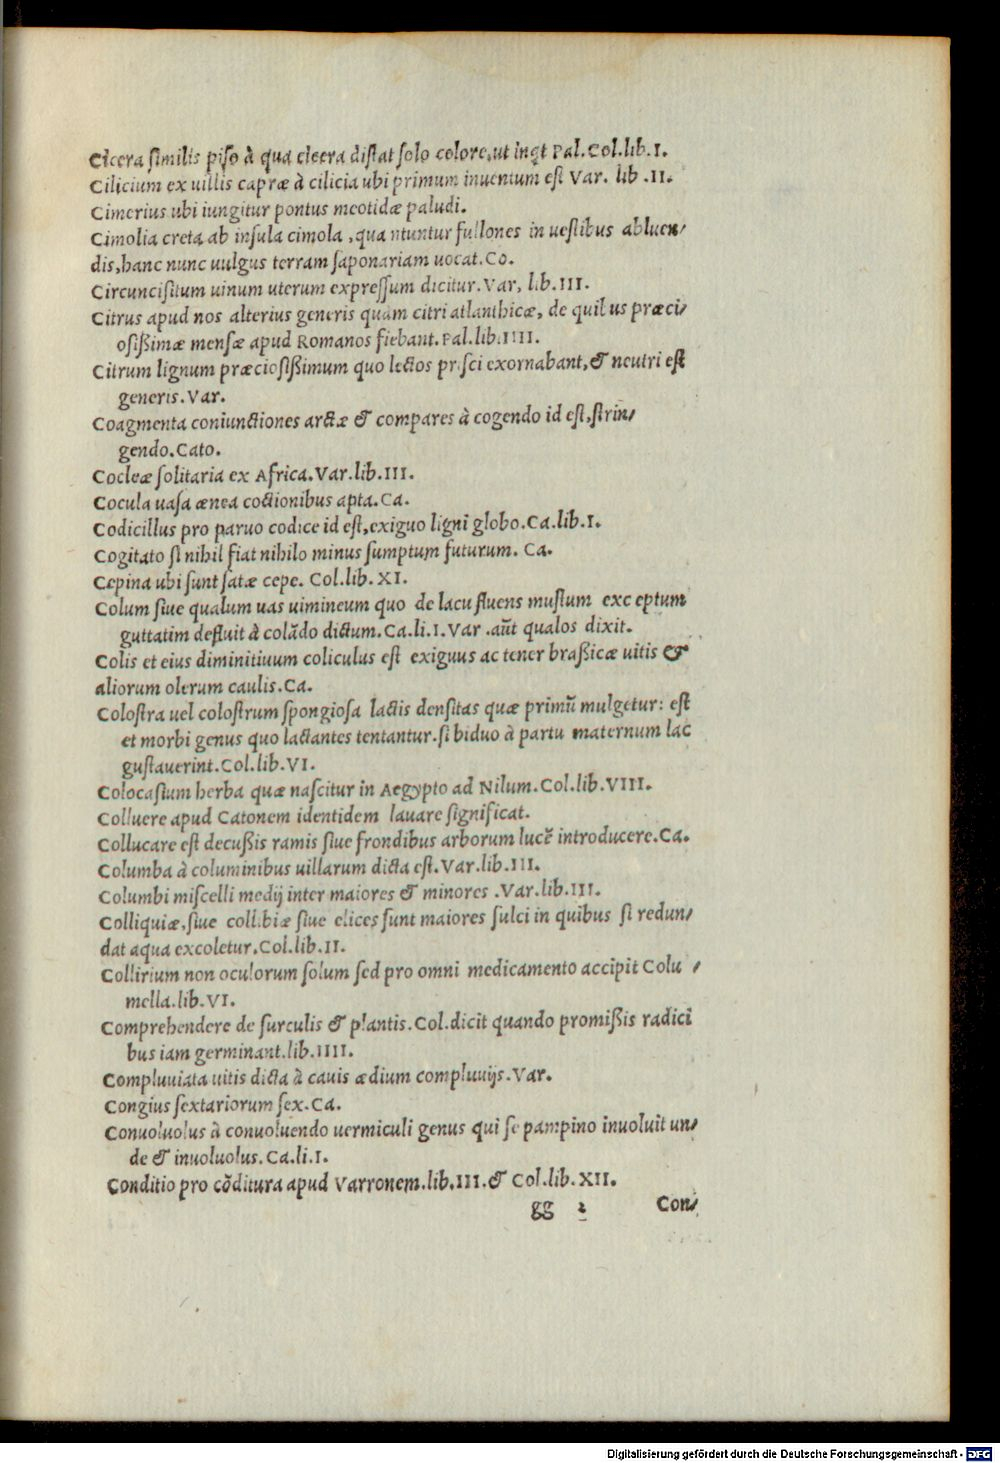 Cicera similis piso à qua cicera distat solo colore, ut inqt Pal.Col.lib.I.
Cilicium ex uillis capræ à cilicia ubi primum inuentum est Var. lib .II.
Cimerius ubi iungitur pontus meotidæ paludi.
Cimolia creta ab insula cimola , qua ntuntur fullones in uestibus abluen/
dis, hanc nunc uulgus terram saponariam uocat.Co.
Circuncisitum uinum uterum expressum dicitur.Var, lib.III.
Citrus apud nos alterius generis quam citri atlanthicæ, de quibus præci/
osißimæ mensæ apud Romanos fiebant.Pal.lib.IIII.
Citrum lignum præciosißimum quo lectos prisci exornabant, & neutri est
generis.Var.
Coagmenta coniunctiones arctæ & compares à cogendo id est, strin/
gendo.Cato.
Cocleæ solitaria ex Africa.Var.lib.III.
Cocula uasa ænea coctionibus apta.Ca.
Codicillus pro paruo codice id est, exiguo ligni globo.Ca.lib.I.
Cogitato si nihil fiat nihilo minus sumptum futurum. Ca.
Cepina ubi sunt satæ cepe. Col.lib.XI.
Colum siue qualum uas uimineum quo de lacu fluens mustum exc eptum
guttatim defluit à colãdo dictum.Ca.li.I.Var .aũt qualos dixit.
Colis et eius diminitiuum coliculus est exiguus ac tener braßicæ uitis &
aliorum olerum caulis.Ca.
Colostra uel colostrum spongiosa lactis densitas quæ primũ mulgetur: est
et morbi genus quo lactantes tentantur.si biduo à partu maternum lac
gustauerint.Col.lib.VI.
Colocasium herba quæ nascitur in Aegypto ad Nilum.Col.lib.VIII.
Colluere apud Catonem identidem lauare significat.
Collucare est decußis ramis siue frondibus arborum lucẽ introducere.Ca.
Columba à columinibus uillarum dicta est.Var.lib.III.
Columbi miscelli medij inter maiores & minores .Var.lib.III.
Colliquiæ, siue collibiæ siue elices sunt maiores sulci in quibus si redun/
dat aqua excoletur.Col.lib.II.
Collirium non oculorum solum sed pro omni medicamento accipit Colu /
mella.lib.VI.
Comprehendere de surculis & plantis.Col.dicit quando promißis radici
bus iam germinant.lib.IIII.
Compluuiata uitis dicta à cauis ædium compluuijs.Var.
Congius sextariorum sex.Ca.
Conuoluolus à conuoluendo uermiculi genus qui se pampino inuoluit un/
de & inuoluolus.Ca.li.I.
Conditio pro cõditura apud Varronem.lib.III.& Col.lib.XII.
gg 2 Con/
Digitalisierung gefördert durch die Deutsche Forschungsgemeinschaft - DFG